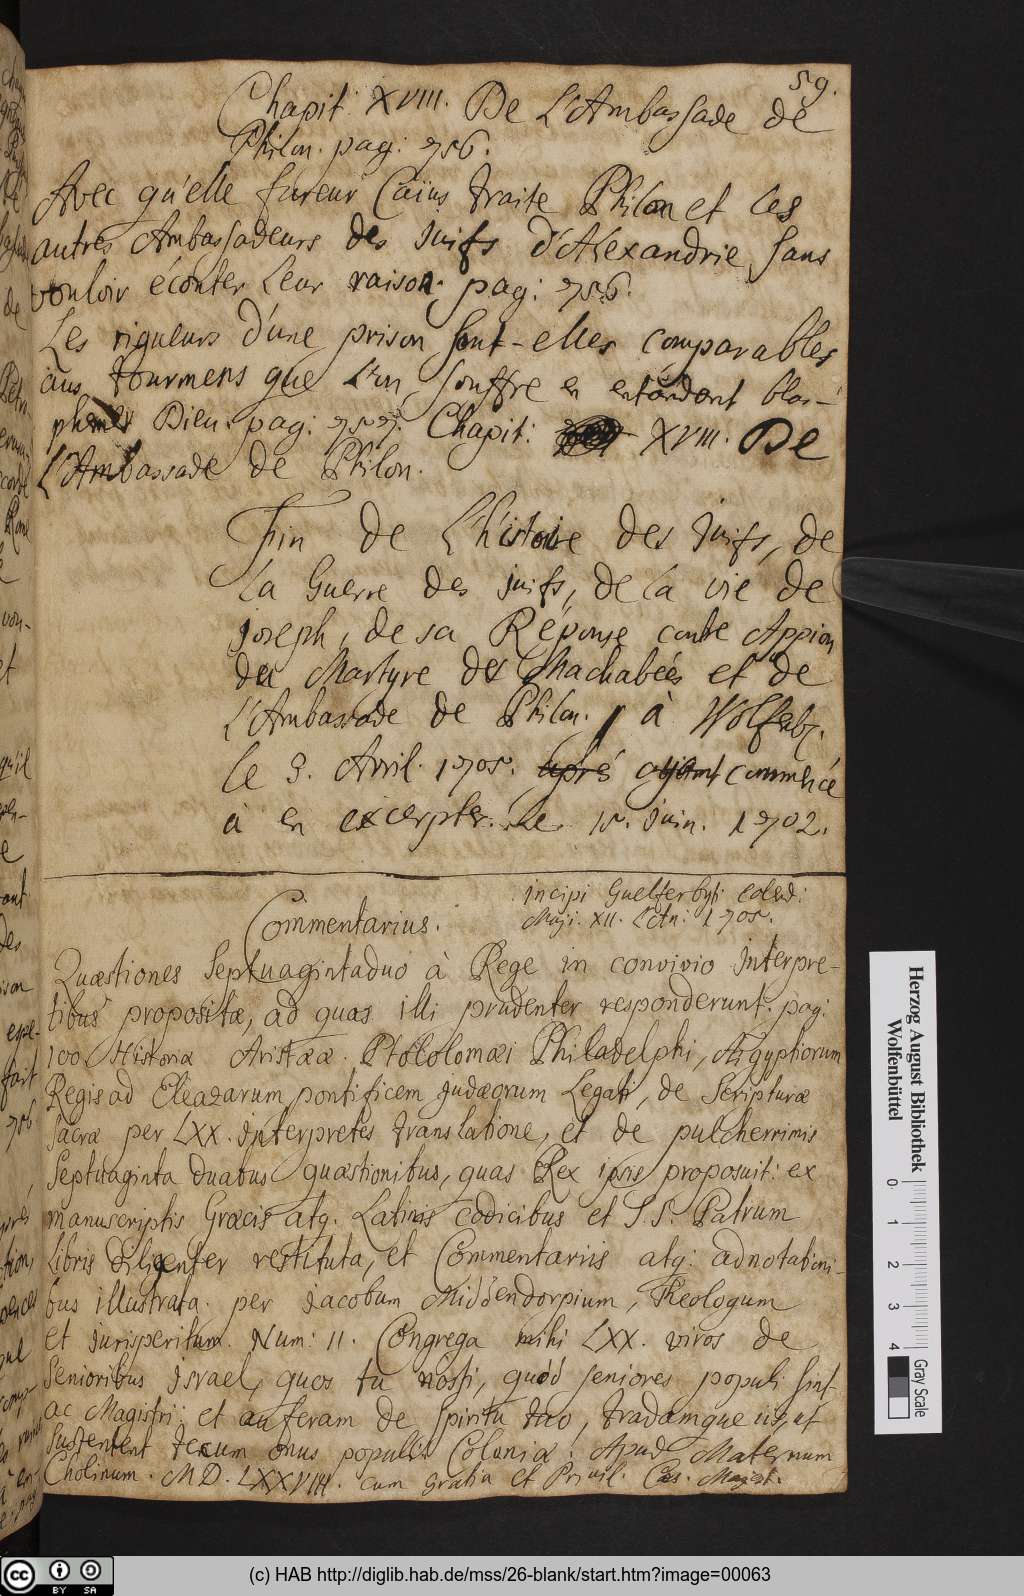 59.
Chapit: XVIII. De L'Ambassade de
Philon. pag: 756.
Avec qu'elle fureur Caïus traite Philon et les
autres Ambassadeurs des Juifs d'Alexandrie, sans
vouloir écouter leur raison. pag: 756.
Les rigueurs d'une prison sont-elles comparables
aus tourmens que l'on souffre en entendant blas-
phemer Dieu. pag: 757. Chapit: XVIII. De
L'Ambassade de Philon.
Fin de L'histoire des Juifs, de
la Guerre des juifs, de la vie de
Joseph, de sa Réponse contre Appion
du Martyre des Machabées et de
L'Ambassade de Philon. à Wolfenb.
le 9. Avril. 1705. aprés ayant commencé
à en excerpter. Le 15. Juin. 1702.
incipi Guelferbyti eod:
Maji. XII. 1705.
Commentarius.
Quæstiones Septuagintaduo à Rege in convivio Interpre-
tibus propositæ, ad quas illi prudenter responderunt. pag:
100. Historia Aristææ. Ptololomæi Philadelphi, Ægyptiorum
Regis ad Eleazarum pontificem Judæorum Legati, de Scripturæ
sacræ per LXX. Interpretes translatione, et de pulcherrimis
Septuaginta duabus quæstionibus, quas Rex ipsis proposuit: ex
manuscriptis Græcis atq. Latinis codicibus et S.S. Patrum
libris diligenter restituta, et Commentariis atq: adnotationi-
bus illustrata. per Jacobum Middendorpium, Theologum
et Jurisperitum. Num: 11. Congrega mihi LXX. viros de
Senioribus Israel, quos tu nosti, quòd seniores populi sint
ac Magistri: et auferam de spiritu tuo, tradamque iis, ut
sustentent tecum onus populi. Coloniæ: Apud Maternum
Cholinum. M.D.LXXVIII. cum gratia et Privil. Cæs. Majest.
Herzog August Bibliothek
Wolfenbüttel
0 1 2 3 4
Gray Scale
cc BY SA
(c) HAB http://diglib.hab.de/mss/26-blank/start.htm?image=00063